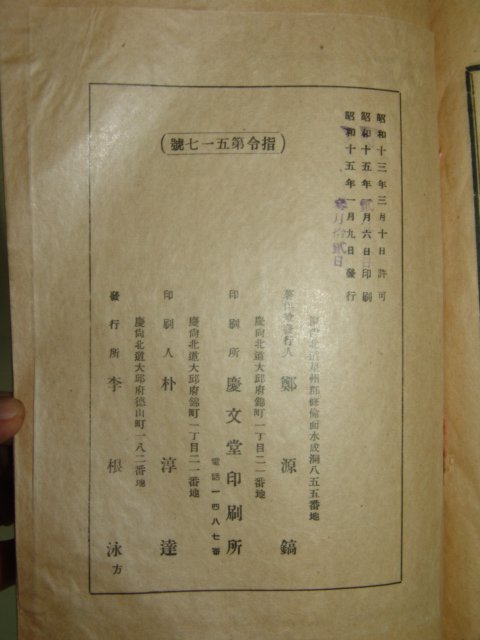 昭和十三年三月十日許可
昭和十五年 月六日印刷
昭和十五年一月九日發行
月拾貳日
指令第五一七號
慶尙北道星州郡修倫面水成洞八五五番地
發行人 鄭源鎬
慶尙北道大邱府錦町一丁目二一番地
印刷所 慶文堂印刷所
電話一四八七番
慶尙北道大邱府錦町一丁目二一番地
印刷人 朴淳達
慶尙北道大邱府德山町一八二番地
發行所 李根泳方